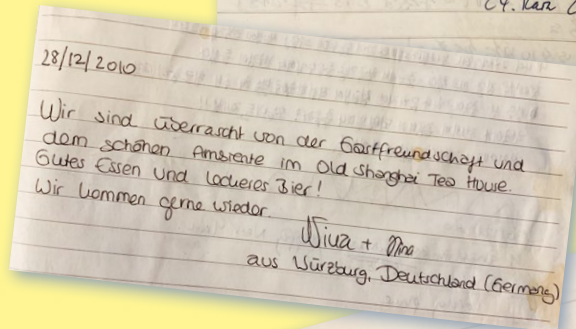 28/12/2010
Wir sind überrascht von der Gastfreundschaft und
dem schönen Ambiente im Old Shanghai Tea House.
Gutes Essen und leckeres Bier!
Wir kommen gerne wieder.
+ Nina
aus Würzburg, Deutschland (Germany)